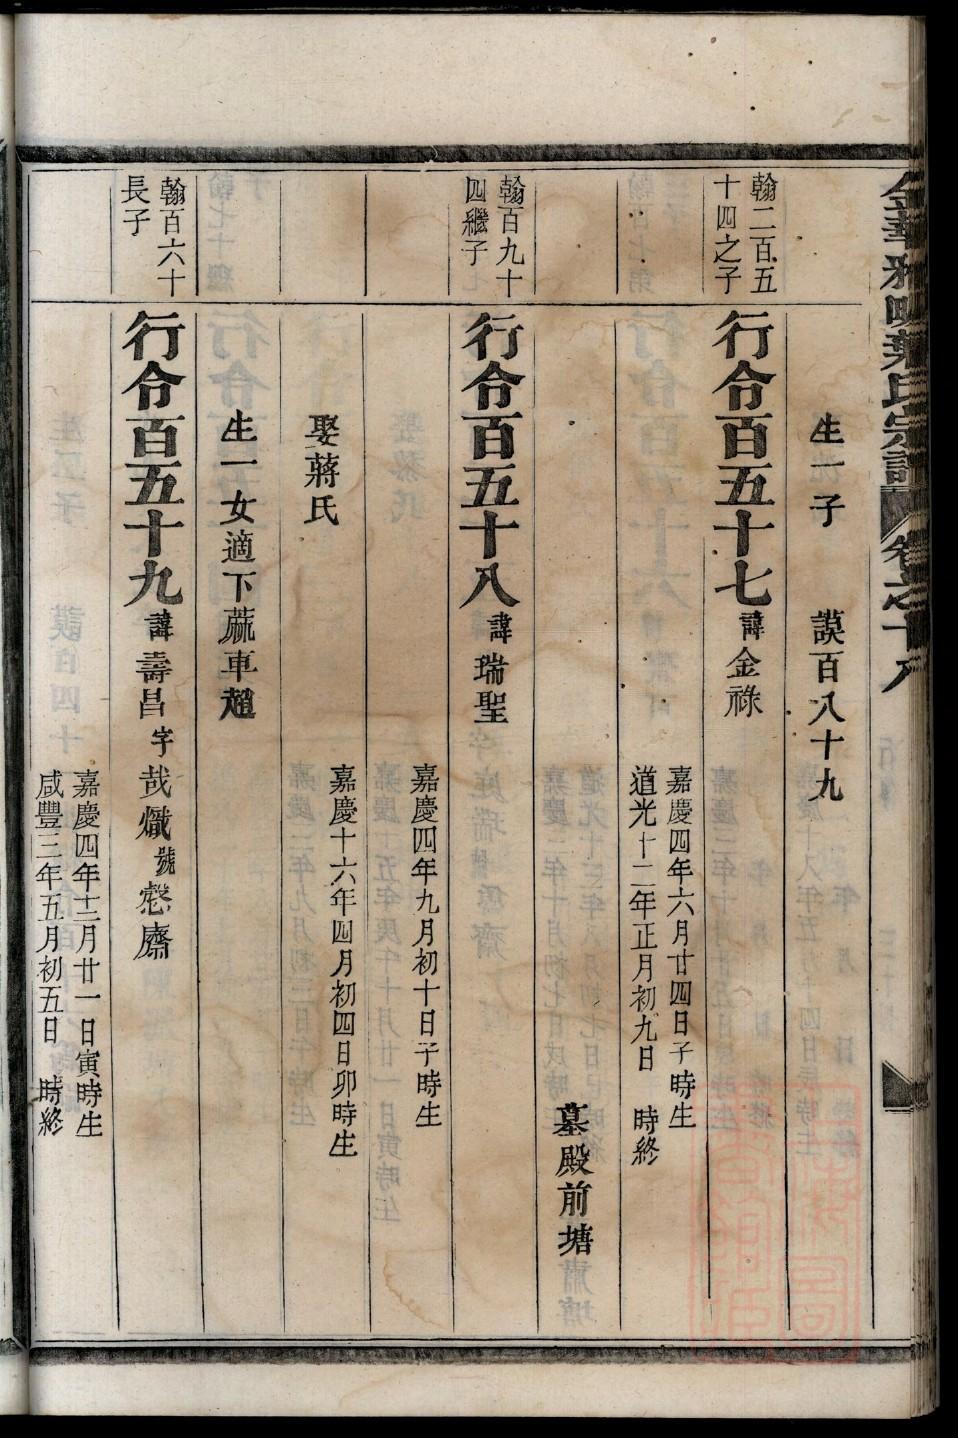 金華
葉氏宗譜
卷之十八
生一子 謨百八十九
翰二百五
十四之子
行令百五十七 諱金祿
嘉慶四年六月廿四日子時生
道光十二年正月初九日 時終
墓殿前塘
翰百九十
四繼子
行令百五十八 諱瑞聖
嘉慶四年九月初十日子時生
娶蔣氏
嘉慶十六年四月初四日卯時生
生一女適下蔴車趙
翰百六十
長子
行令百五十九 諱壽昌字哉熾號慤齋
嘉慶四年十二月廿一日寅時生
咸豐三年五月初五日 時終